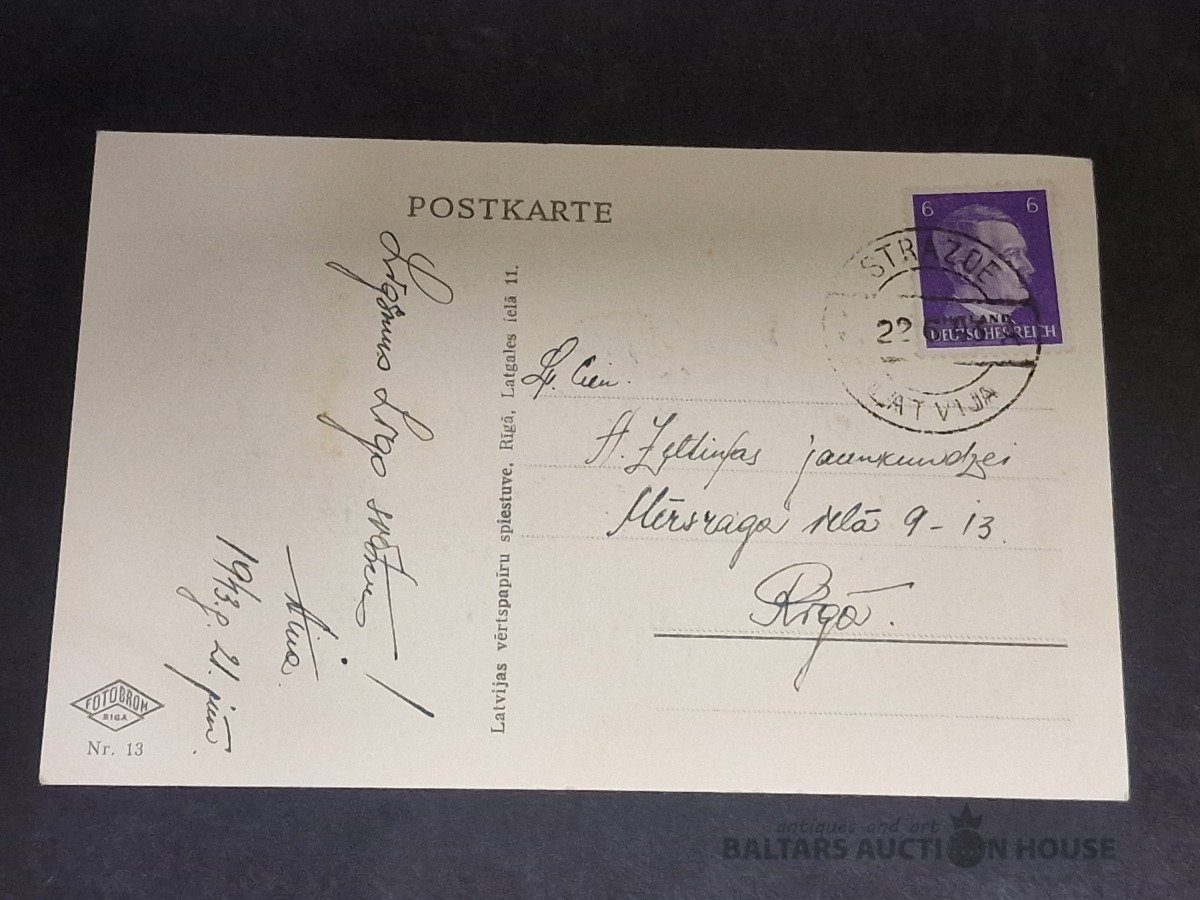 POSTKARTE
Līgsmus Līgo svētkus!
Aina.
1943.g. 21. jūn.
FOTOBROM
RIGA
Nr. 13
Latvijas vērtspapīru spiestuve, Rīgā, Latgales ielā 11.
6 6
DEUTSCHES REICH
STRAZDE
22
LATVIJA
Ļ. Cien.
A. Zeltiņas jaunkundzei
Mērsraga ielā 9-13.
Rīgā.
antiques and art
BALTARS AUCTION HOUSE